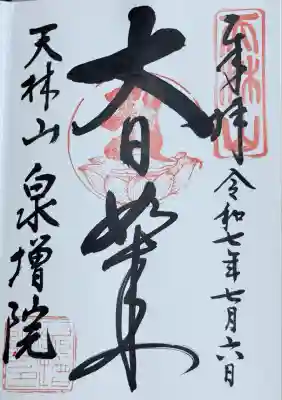 奉拝
令和七年七月六日
大日如来
天林山
泉増院